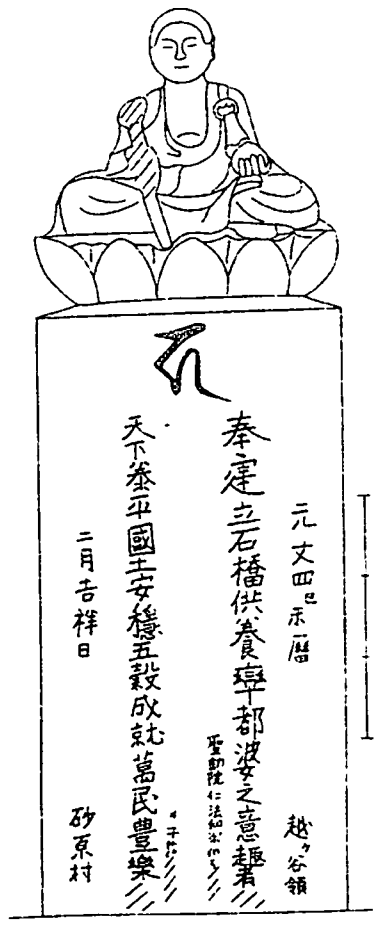 元文四巳未暦 越ヶ谷領
奉建立石橋供養卒都婆之意趣者
聖動院
天下泰平國土安穏五穀成就萬民豊樂
二月吉祥日 砂原村